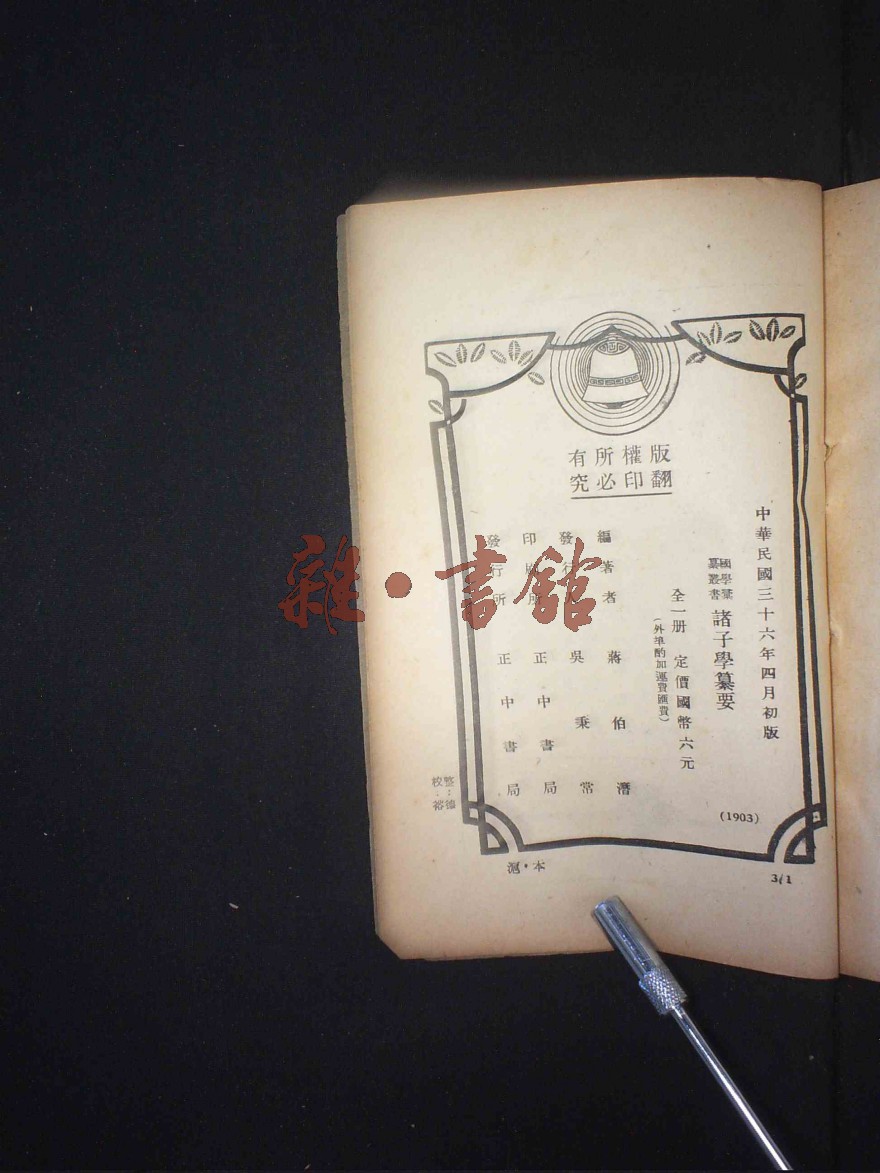 版權所有
翻印必究
中華民國三十六年四月初版
國學彙纂叢書
諸子學纂要
全一册 定價國幣六元
(外埠酌加運費匯費)
編著者 蔣伯潛
發行 吳秉常
印 所 正中書局
發行所 正中書局
(1903)
校整
裕德
滬・本
3/1
雜・書館